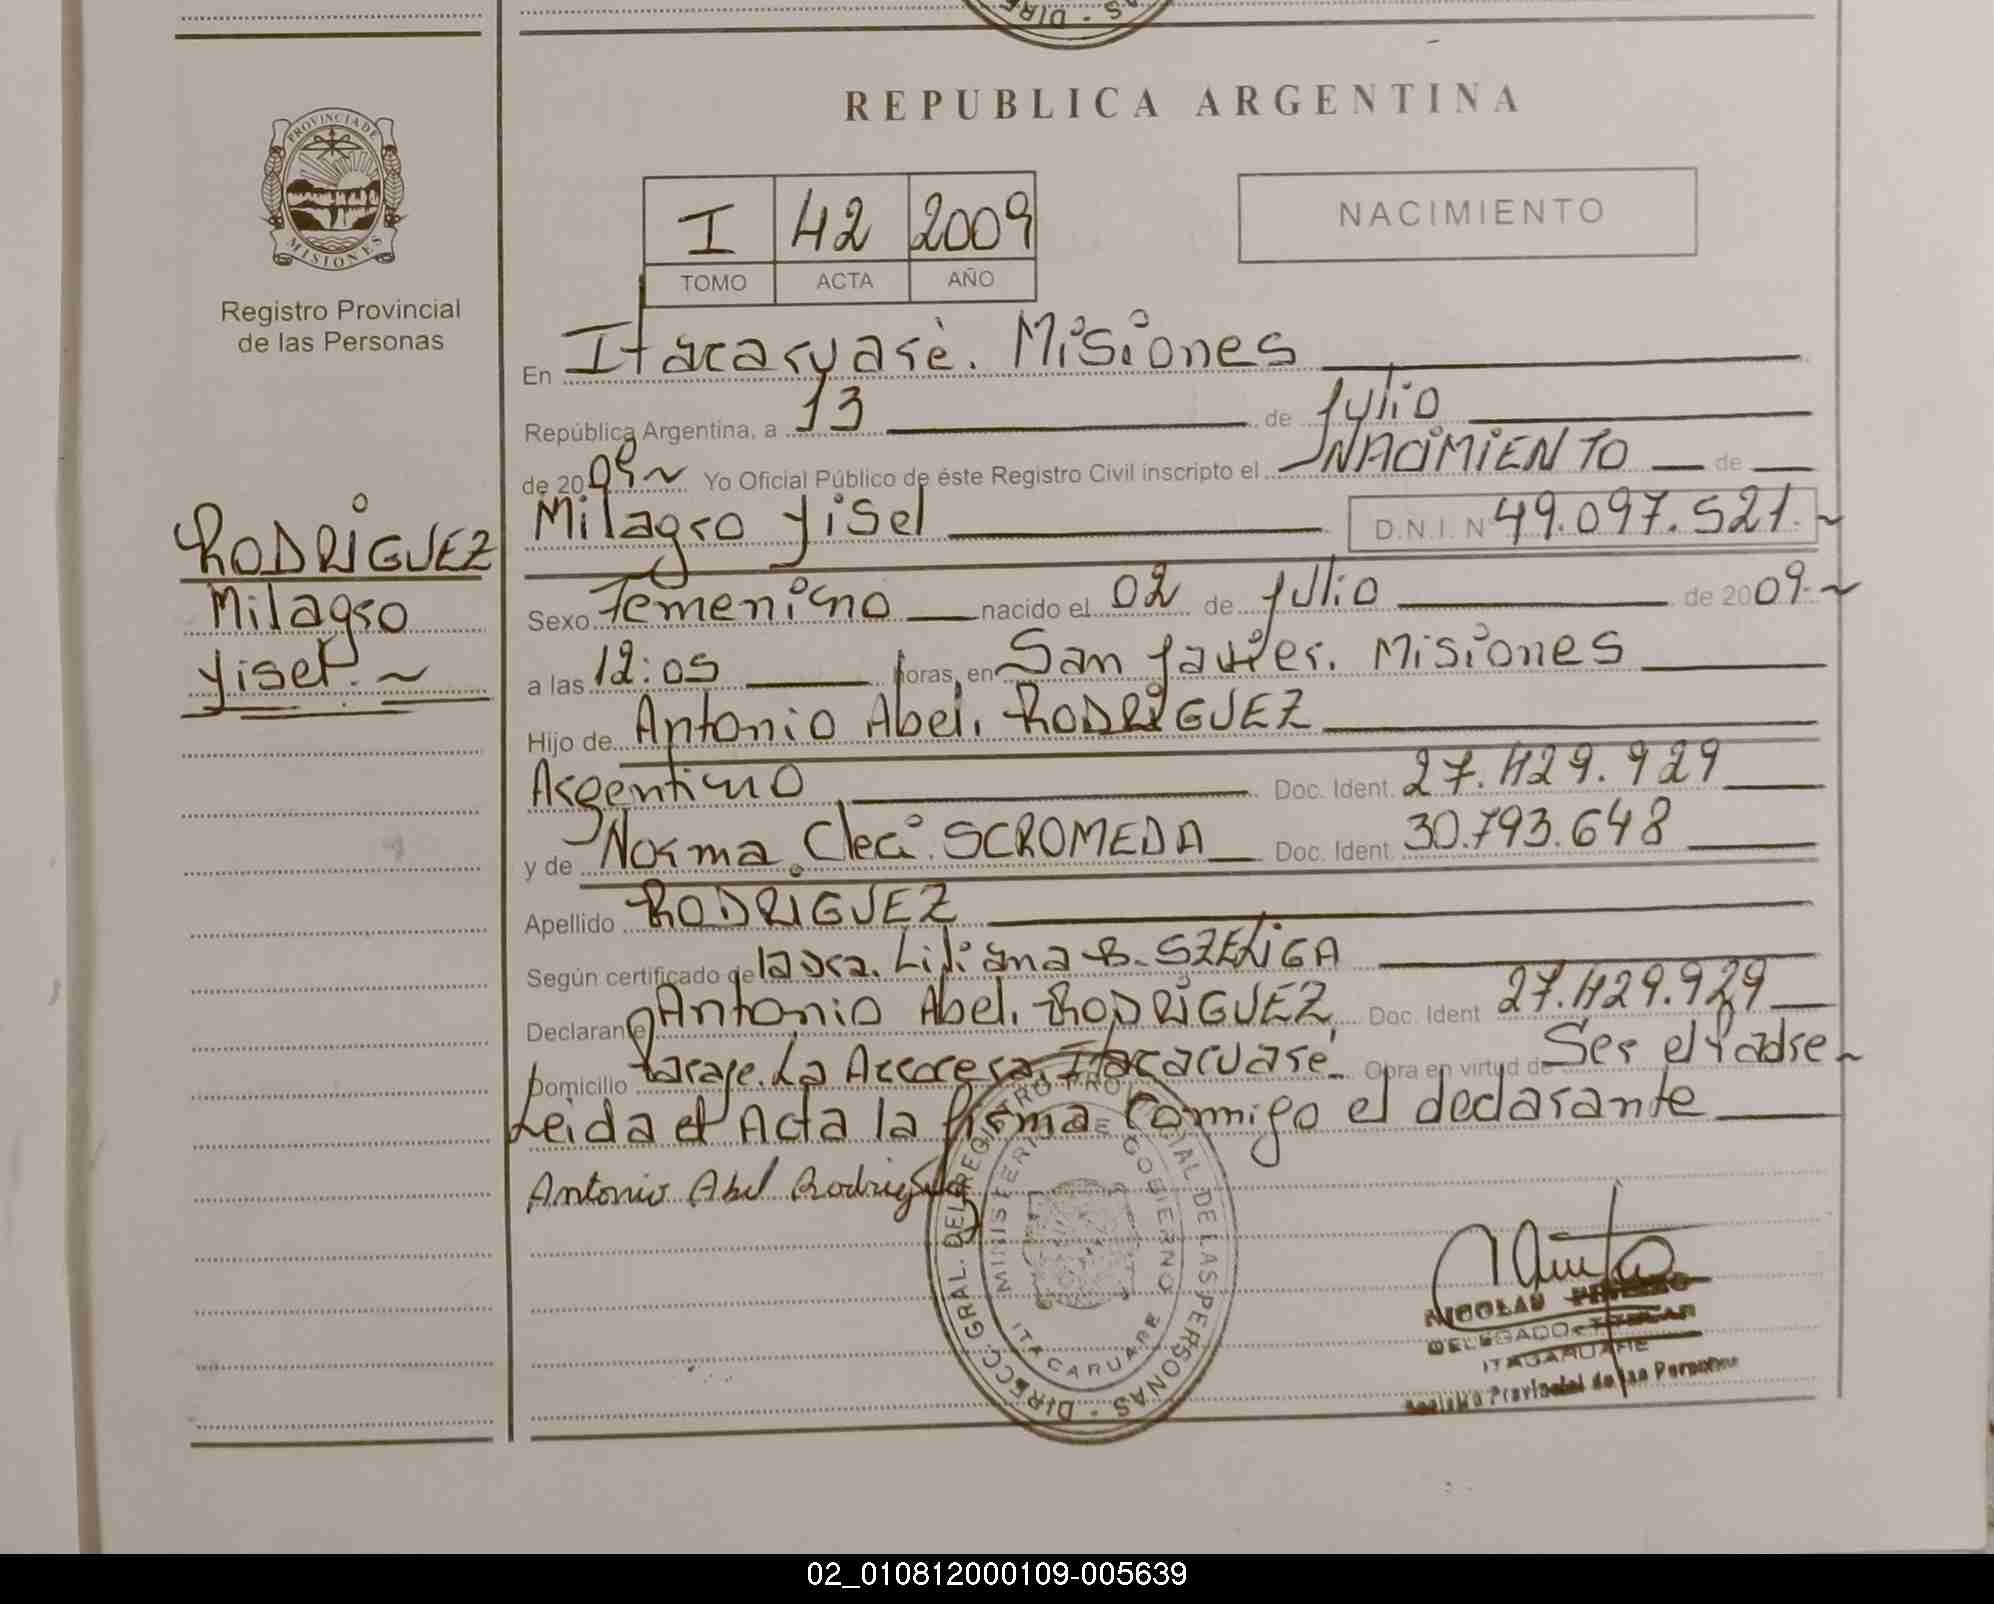 REPUBLICA ARGENTINA
PROVINCIA DE MISIONES
Registro Provincial
de las Personas
I 42 2009
TOMO ACTA AÑO
NACIMIENTO
En Itacaruarè. Misiones
República Argentina, a 13 de Julio
de 2009 Yo Oficial Público de éste Registro Civil inscripto el NACIMIENTO de
Milagro Yisel D.N.I. N 49.097.521.
RODRIGUEZ
Milagro
Yisel.
Sexo Femenino nacido el 02 de Julio de 2009.
a las 12:05 horas, en San Javier. Misiones
Hijo de Antonio Abel. RODRIGUEZ
Argentino Doc. Ident. 27.429.929
y de Norma Cleci. SCROMEDA Doc. Ident. 30.793.648
Apellido RODRIGUEZ
Según certificado de la Dra. Liliana B. SZELIGA
Declarante Antonio Abel. RODRIGUEZ Doc. Ident 27.429.929
Domicilio Paraje. La Itacaruaré. Obra en virtud de Ser el Padre
Leida el Acta la firma Conmigo el declarante
Antonio Abel Rodriguez
DIRECC. GRAL. DEL REGISTRO PROVINCIAL DE LAS PERSONAS
MINISTERIO DE GOBIERNO
ITACARUARE
NICOLAS
DELEGADO TITULAR
ITACARUARE
Registro Provincial de las Personas
02_010812000109-005639